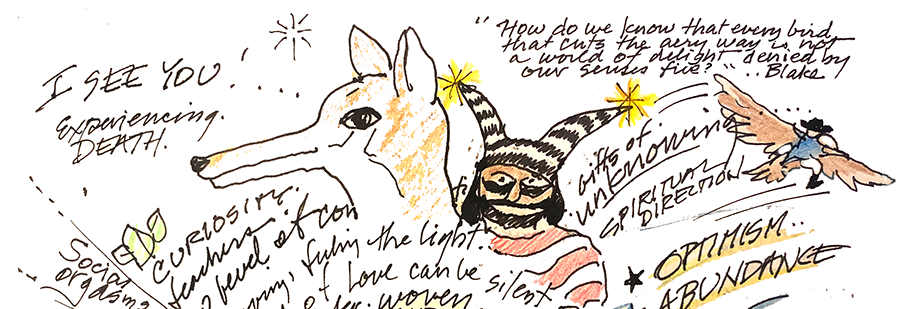 "How do we know that every bird
that cuts the aery way is not
a world of delight denied by
our senses five?" ... Blake
I SEE YOU!
Experiencing
DEATH.
gifts of
unknowing
SPIRITUAL
DIRECTION
CURIOSITY.
teachers if con
level of
the light.
of Love can be
silent
woven
Social
orgasms
OPTIMISM..
ABUNDANCE